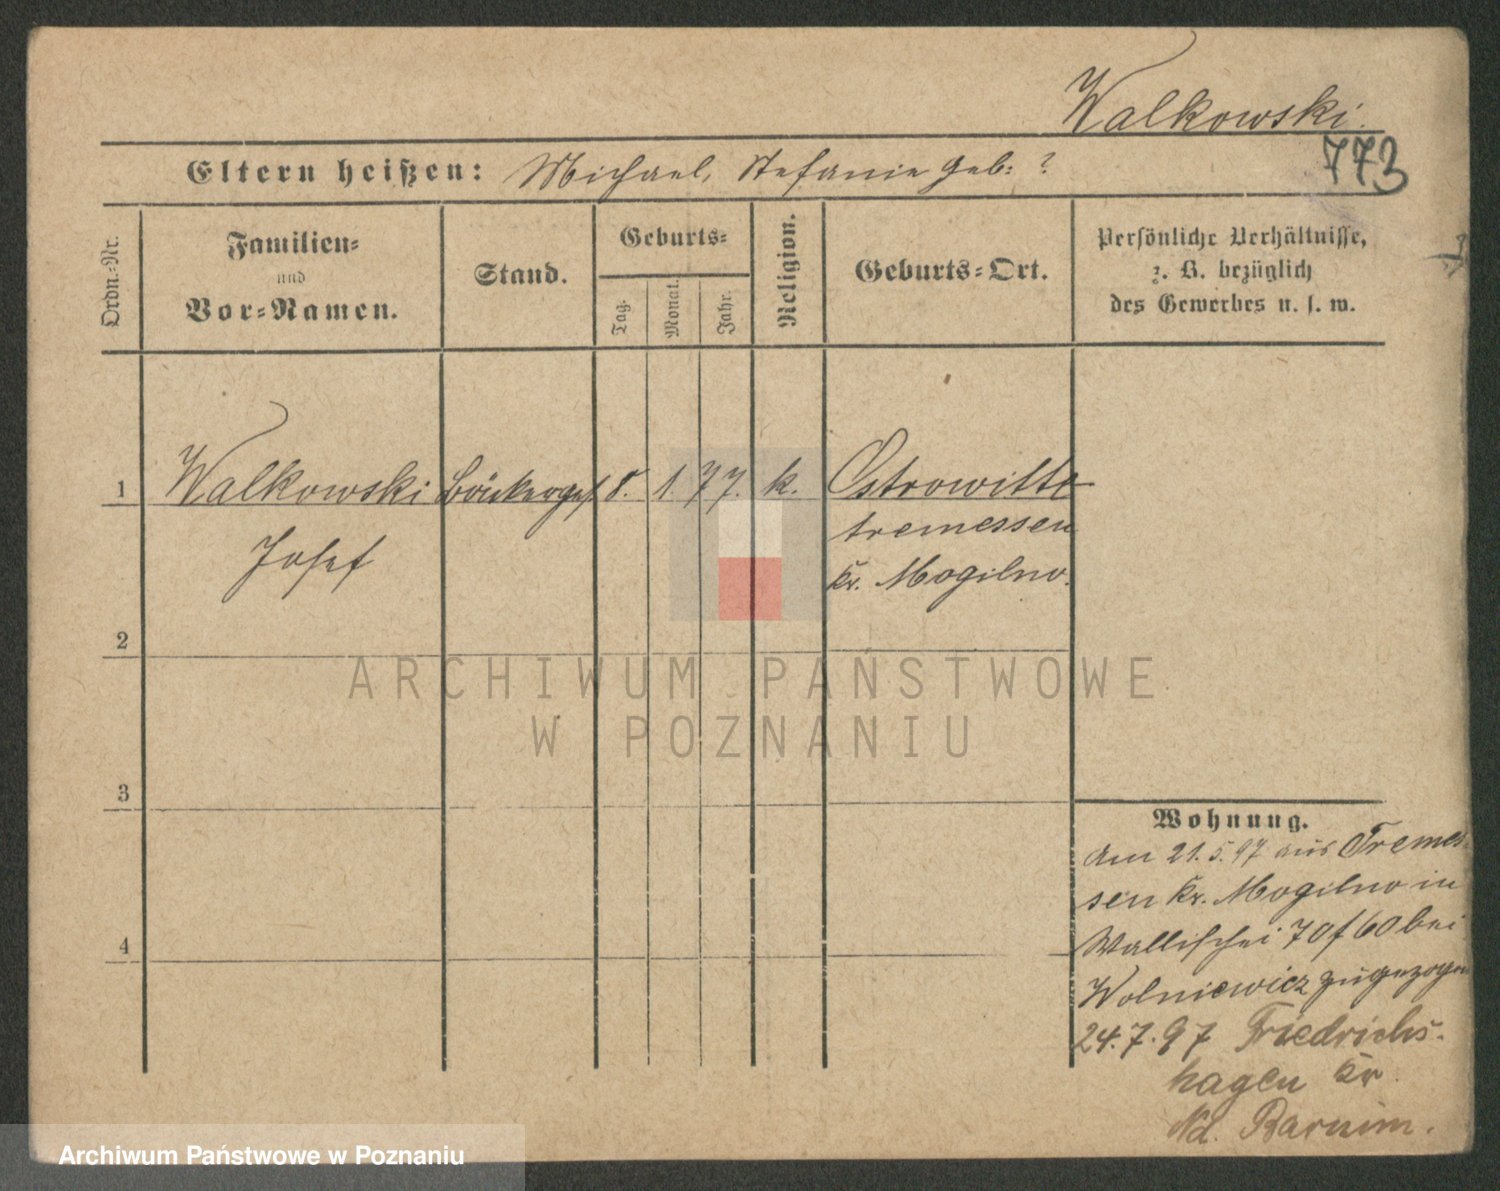 Walkowski.
773
Eltern heißen: Michael, Stefanie geb: ?
Ordn.-Nr.
Familien-
und
Vor-Namen.
Stand.
Geburts-
Tag.
Monat.
Jahr.
Religion.
Geburts-Ort.
Persönliche Verhältnisse,
z. B. bezüglich
des Gewerbes u. s. w.
1 Walkowski Bäckerges. 8. 1. 77. k. Ostrowitte
Josef
tremessen
Kr. Mogilno.
2
3
4
Wohnung.
Am 21.5.97 aus Tremes-
sen Kr. Mogilno in
Wallischei 70/60 bei
Wolniewicz zugezogen
24.7.97 Friedrichs-
hagen Kr
Nd. Barnim.
ARCHIWUM PAŃSTWOWE
W POZNANIU
Archiwum Państwowe w Poznaniu